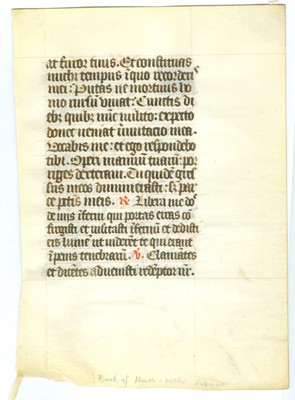 at furor tuus. Et constituas
michi tempus i quo recorderis
mei: Putas ne mortuus ho
mo rursu vivat: Cunctis di
ebz quibz nuc milito: expecto
donec veniat imutacio mea.
Vocabis me: et ego respondebo
tibi. Operi manuu tuaru: por
riges dexteram. Tu quide gres
sus meos dinumerasti: sz par
ce petis meis. R. Libera me do
de viis iferni qui portas ereas co
fregisti et visitasti ifernu et dedisti
eis lume ut viderét te qui erant
i penis tenebraru. V. Clamates
et dicetes advenisti redeptor nr.
Book of Hours